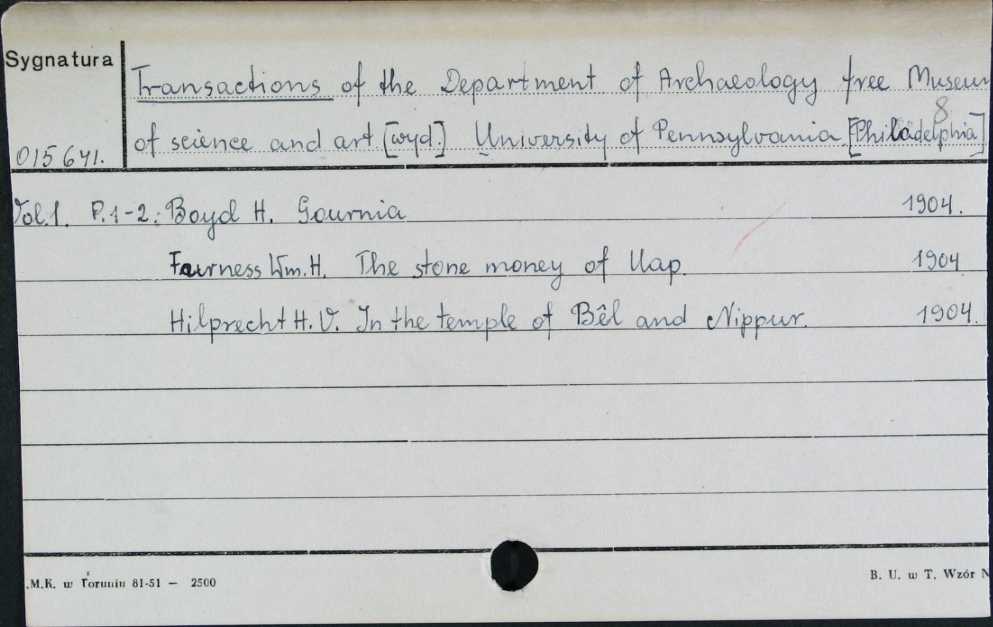 Sygnatura
Transactions of the Department of Archaeology free Museum
8
of science and art [wyd.] University of Pennsylvania [Philadelphia]
015641.
Vol.1. P.1-2: Boyd H. Gournia 1904.
Furness Wm. H. The stone money of Uap. 1904
Hilprecht H. V. In the temple of Bêl and Nippur. 1904.
.M.K. w Toruniu 81-51 — 2500
B. U. w T. Wzór N